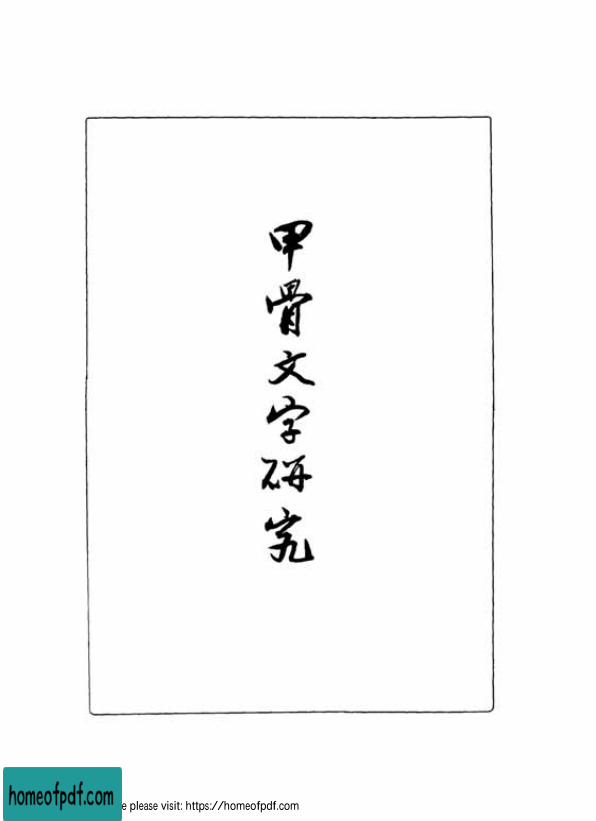 甲骨文字研究
homeofpdf.com
e please visit: https://homeofpdf.com